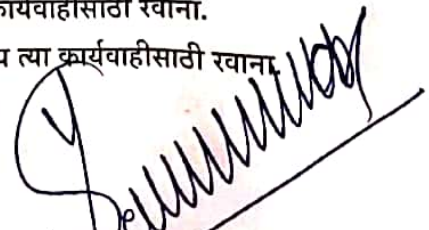 कार्यवाहीसाठी रवाना.
त्या कार्यवाहीसाठी रवाना